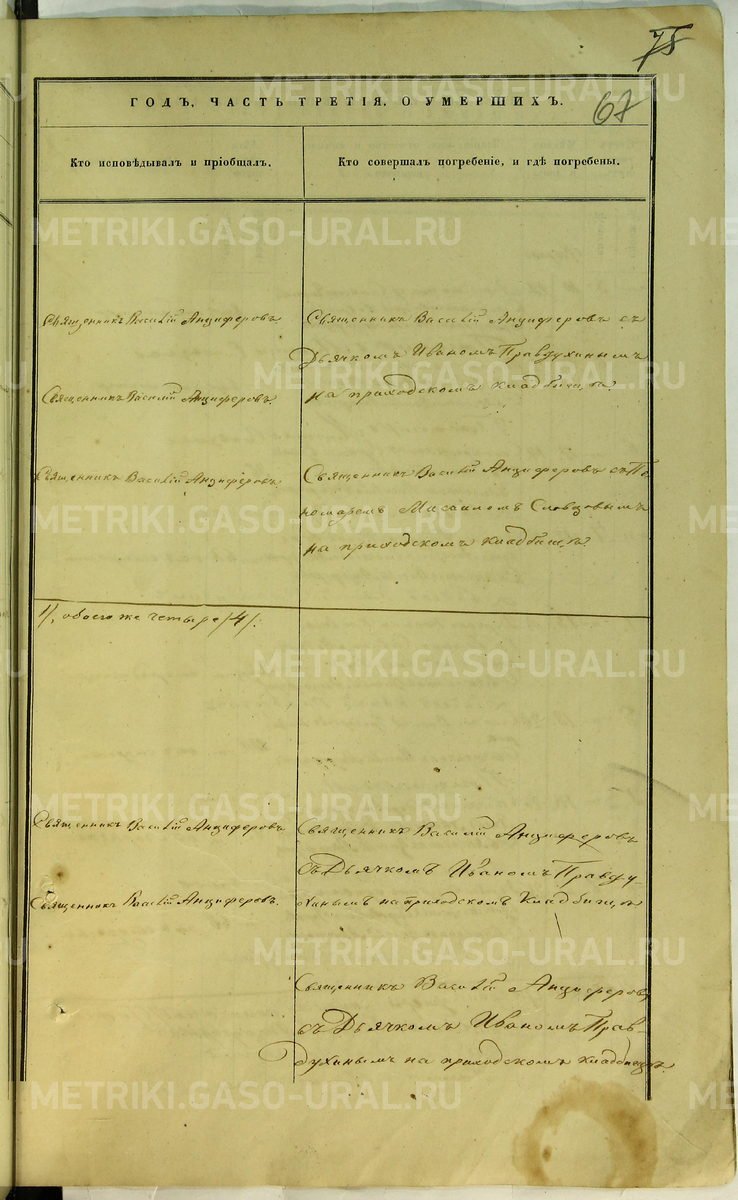 75
67
ГОДЪ, ЧАСТЬ ТРЕТІЯ, О УМЕРШИХЪ.
Кто исповѣдывалъ и пріобщалъ.
Кто совершалъ погребеніе, и гдѣ погребены.
Священникъ Василій Анциферовъ
Священникъ Василій Анциферовъ съ
Дьячкомъ Иваномъ Правдухинымъ
на приходскомъ кладбищѣ.
Священникъ Василій Анциферовъ.
Священникъ Василій Анциферовъ.
Священникъ Василій Анциферовъ съ По
номаремъ Михаиломъ Словцовымъ
на приходскомъ кладбищѣ.
1/, обоего же четыре /4/.
Священникъ Василій Анциферовъ
Священникъ Василій Анциферовъ
съ Дьячкомъ Иваномъ Правду-
хинымъ на приходскомъ Кладбищѣ
Священникъ Василій Анциферовъ.
Священникъ Василій Анциферовъ
съ Дьячкомъ Иваномъ Прав-
духинымъ на приходскомъ кладбищѣ.
METRIKI.GASO-URAL.RU